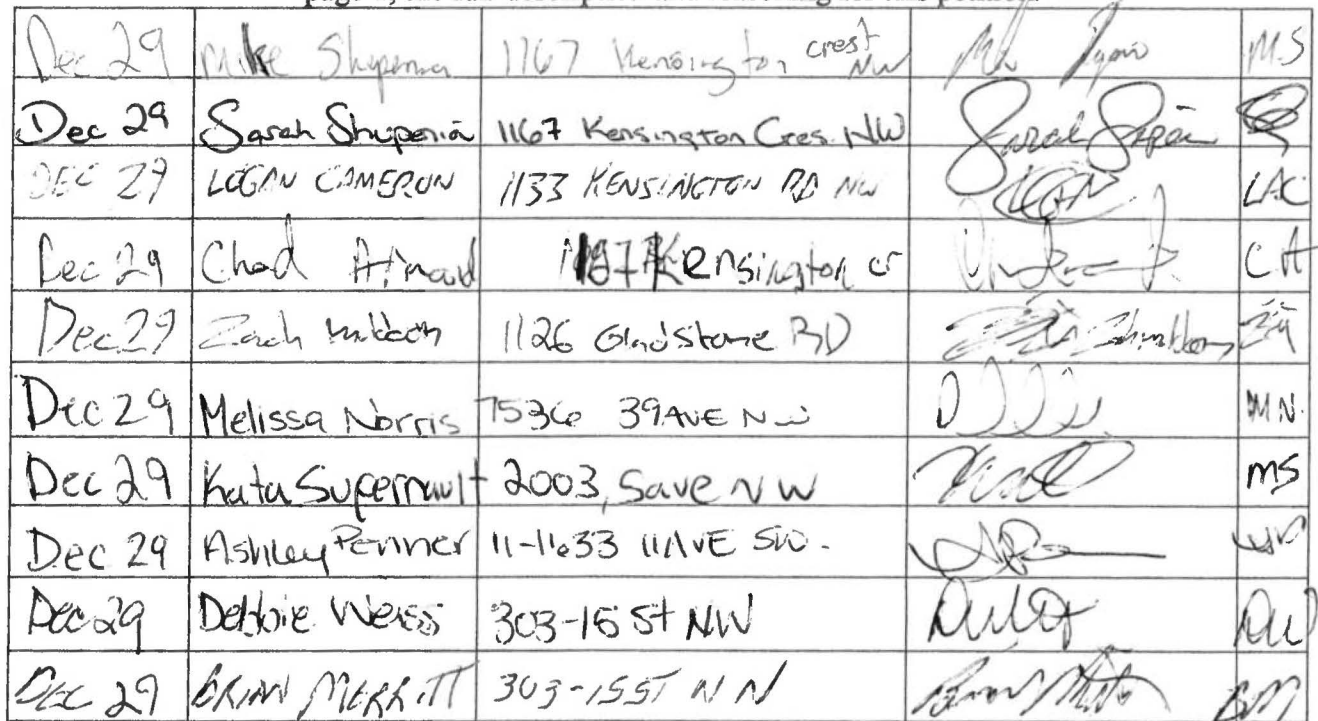 Dec 29 Mike 1167 Kensington crest NW M.S
Dec 29 Sarah Shupenia 1167 Kensington Cres. NW
DEC 29 LOGAN CAMERON 1133 KENSINGTON RD NW LAC
Dec 29 Chad Kensington cr CA
Dec 29 Zach 1126 Gladstone RD
Dec 29 Melissa Norris 7536 39 AVE NW MN.
Dec 29 Supernault 2003, 5ave NW MS
Dec 29 Ashley Penner 11-1633 11AVE SW.
Dec 29 Debbie Weiss 303-15 St NW DW
DEC 29 BRIAN MERRITT 303-15ST NW BM